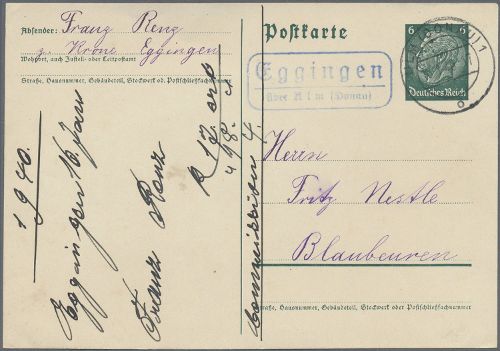 Absender: Franz Renz
z. Krone Eggingen
Wohnort, auch Zustell- oder Leitpostamt
Straße, Hausnummer, Gebäudeteil, Stockwerk od. Postschließfachnummer
Postkarte
6 6
Deutsches Reich
Eggingen
über Ulm (Donau)
Herrn
Fritz Nestle
Blaubeuren
Straße, Hausnummer, Gebäudeteil, Stockwerk oder Postschließfachnummer
1940.
Eggingen 16 Jan
Franz Renz